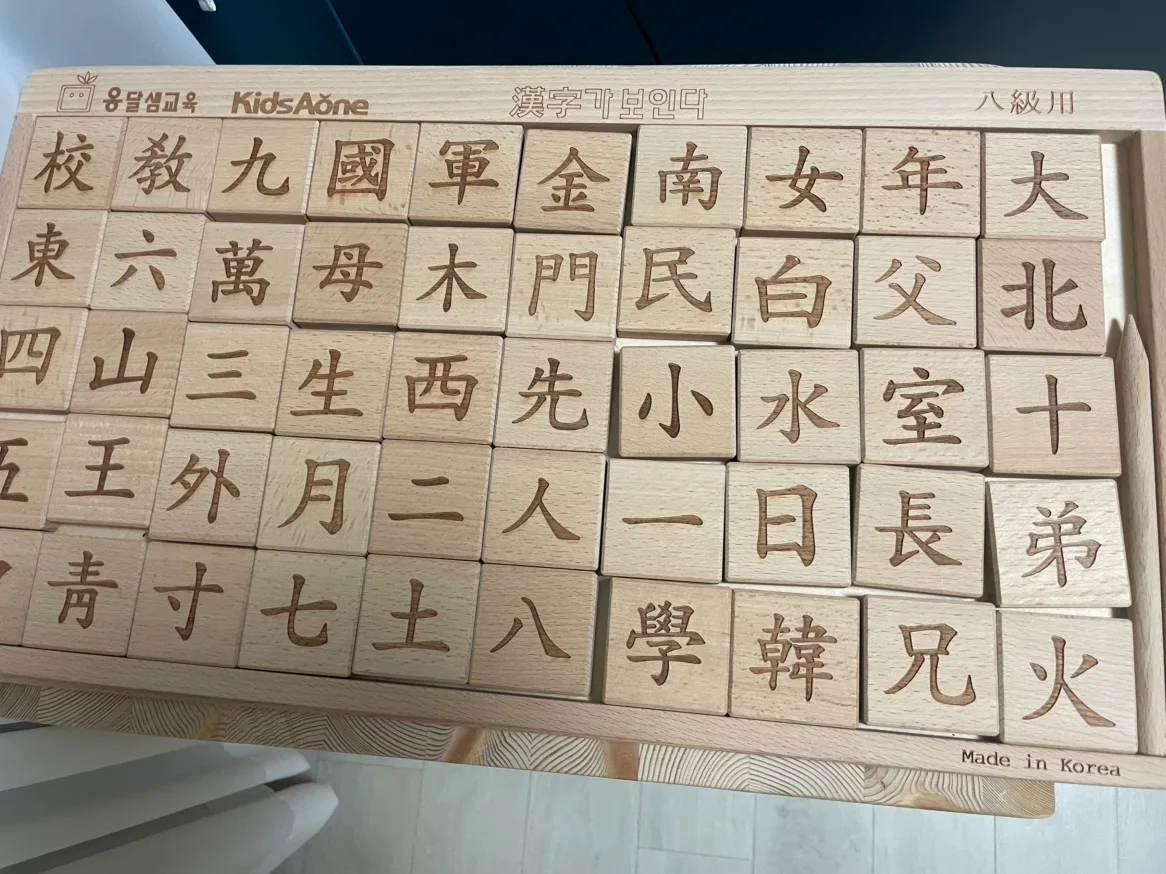 옹달샘교육 KidsAone 漢字가보인다 八級用
校 教 九 國 軍 金 南 女 年 大
東 六 萬 母 木 門 民 白 父 北
四 山 三 生 西 先 小 水 室 十
五 王 外 月 二 人 一 日 長 弟
靑 寸 七 土 八 學 韓 兄 火
Made in Korea